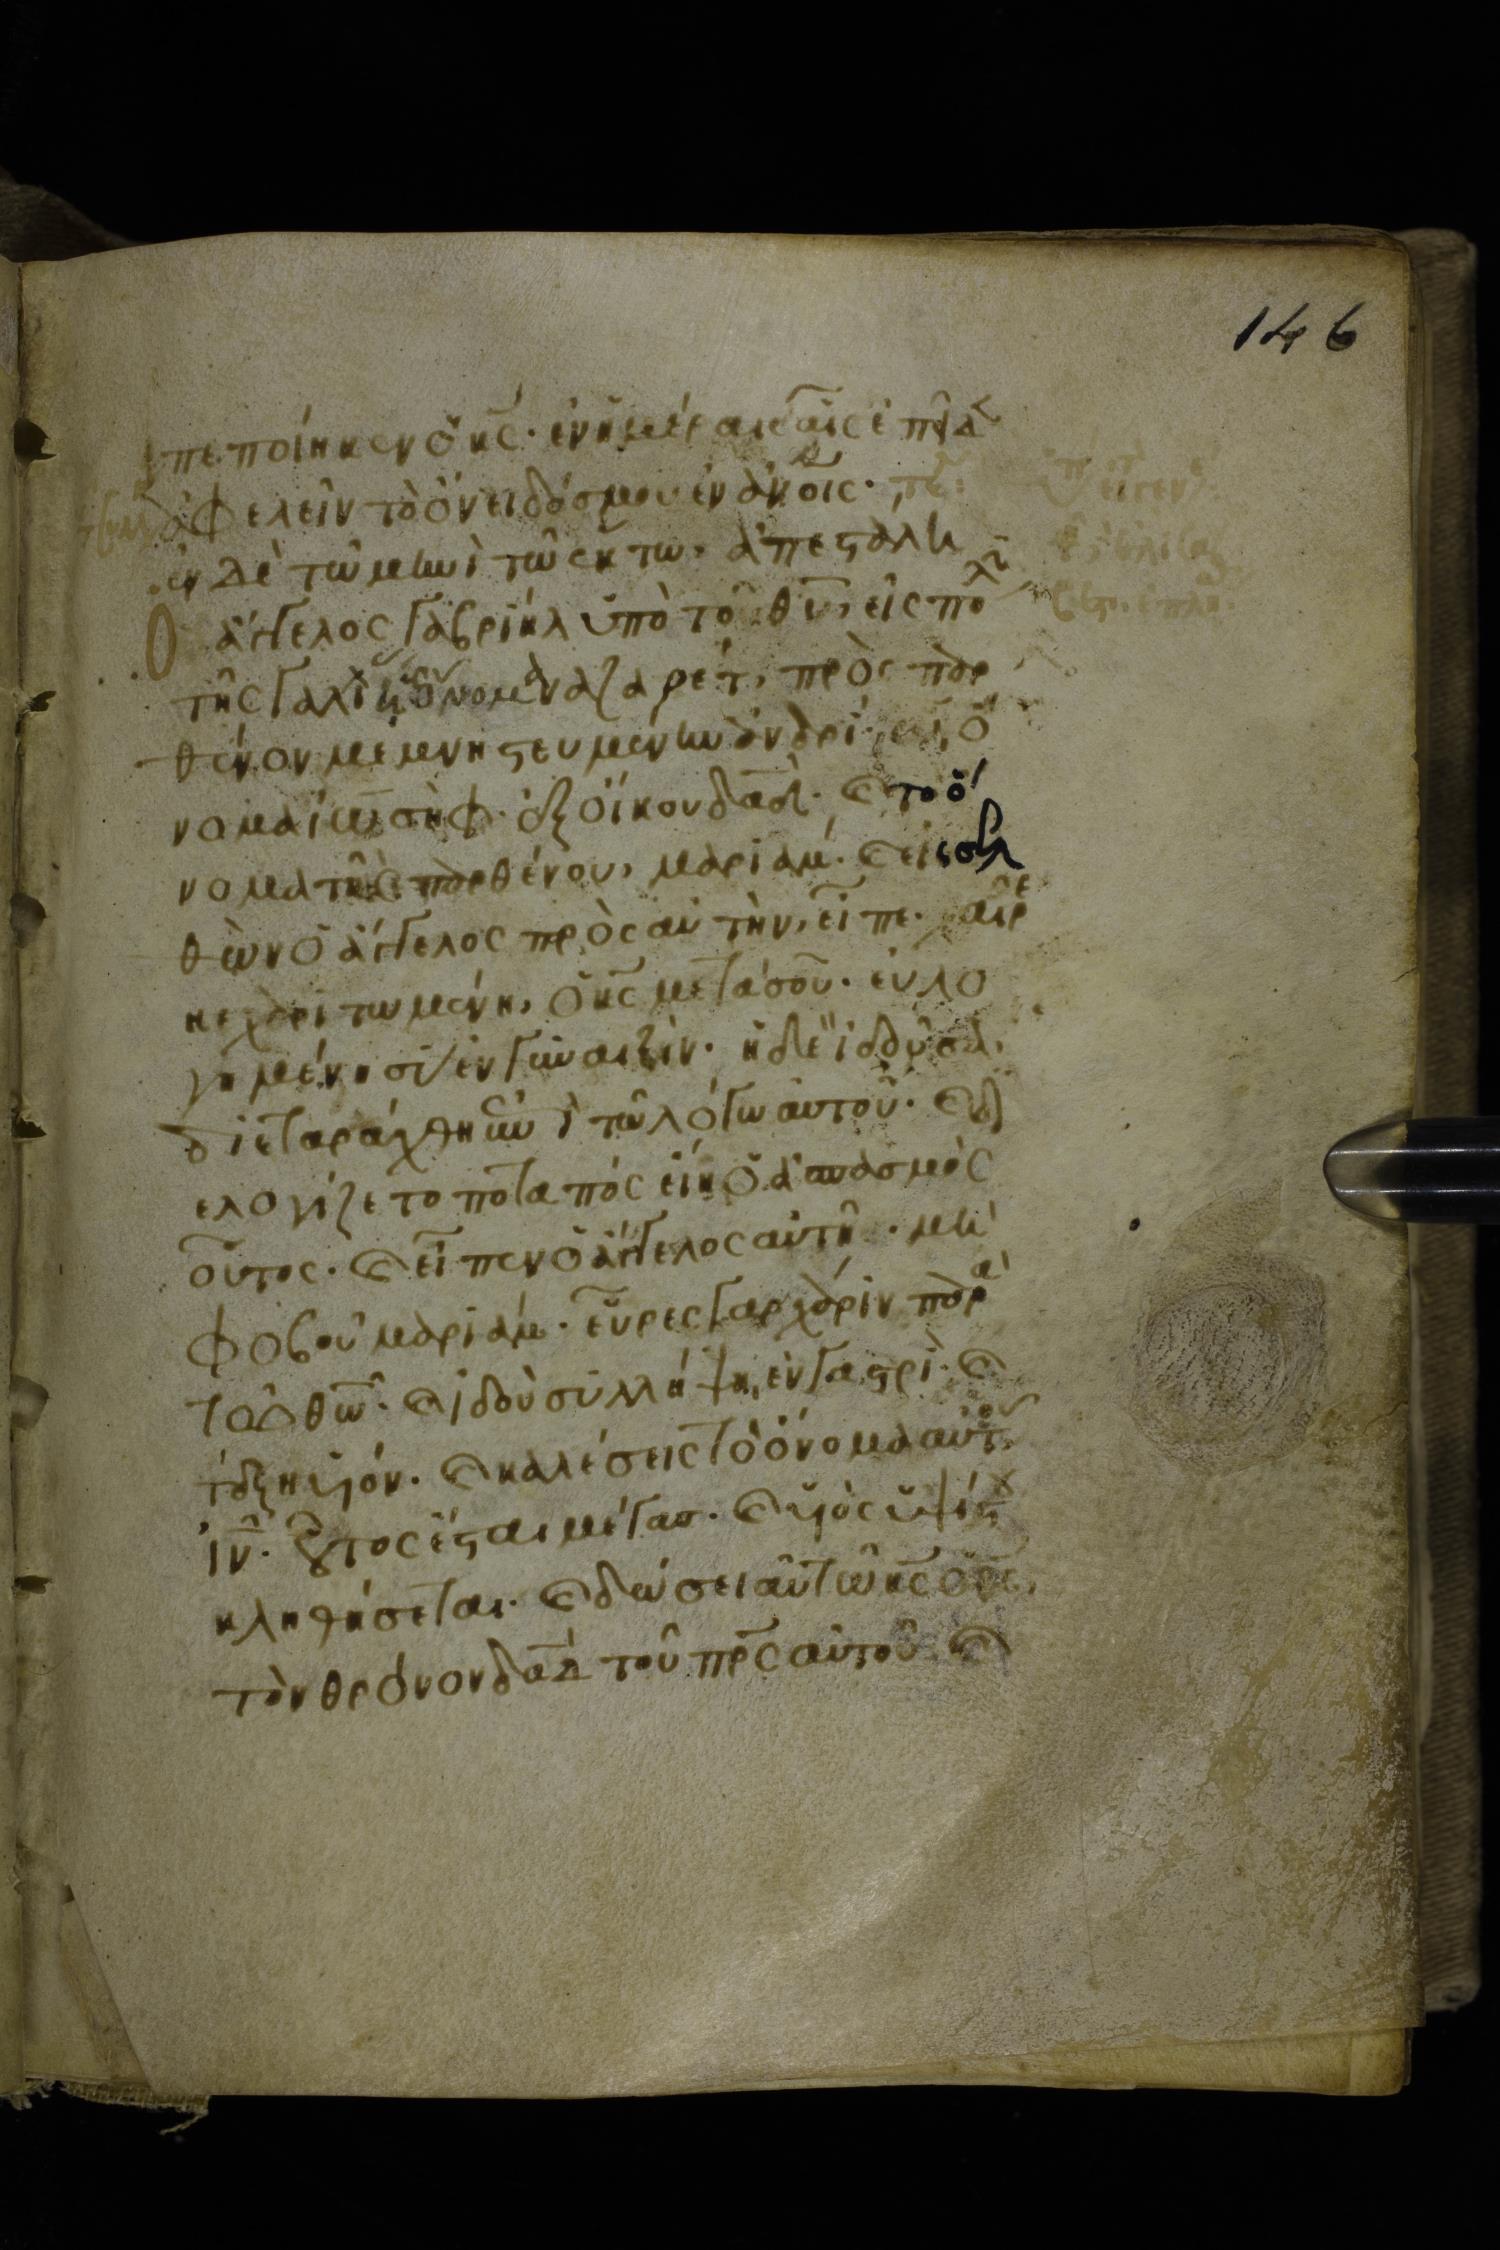 146
πεποίηκεν ὁ κς· ἐν ἡμέραις αἷς ἐπῖδ
ἀφελεῖν τὸ ὄνειδός μου ἐν ἀνοις·
ἐν δὲ τῶ μηνὶ τῶ ἕκτω, ἀπεστάλη
ὁ ἄγγελος γαβριὴλ ὑπὸ τοῦ θυ, εἰς πολῖ
τῆς γαλι ὄνομα ναζαρέτ, πρὸς παρ
θένον μεμνηστευμένην ἀνδρί, ὧ ὄ
νομα ἰωσὴφ· ἐξ οἴκου δαδ· κ το ὄ
νομα τῆς παρθένου, μαριάμ· κ εἰσελ
θὼν ὁ ἄγγελος πρὸς αὐτὴν, εἶπε· χαῖρε
κεχαριτωμένη, ὁ κς μετὰ σοῦ· εὐλο
γημένη σὺ ἐν γυναιξίν· ἡ δὲ ἰδοῦσα,
διεταράχθη ἐπὶ τῶ λόγω αὐτοῦ· κ δι
ελογίζετο ποταπὸς εἴη ὁ ἀσπασμὸς
οὗτος· κ εἶπεν ὁ ἄγγελος αὐτῆ· μὴ
φοβοῦ μαριάμ· εὗρες γὰρ χάριν παρα
τῶ θω· κ ἰδοὺ συλλήψη ἐν γαστρὶ· κ
τέξη υἱόν· κ καλέσεις τὸ ὄνομα αὐτοῦ
ἰν· οὗτος ἔσται μέγας· κ υἱὸς ὑψίστ
κληθήσεται· κ δώσει αὐτῶ κς ὁ θς,
τὸν θρόνον δαδ τοῦ πρς αὐτοῦ κ